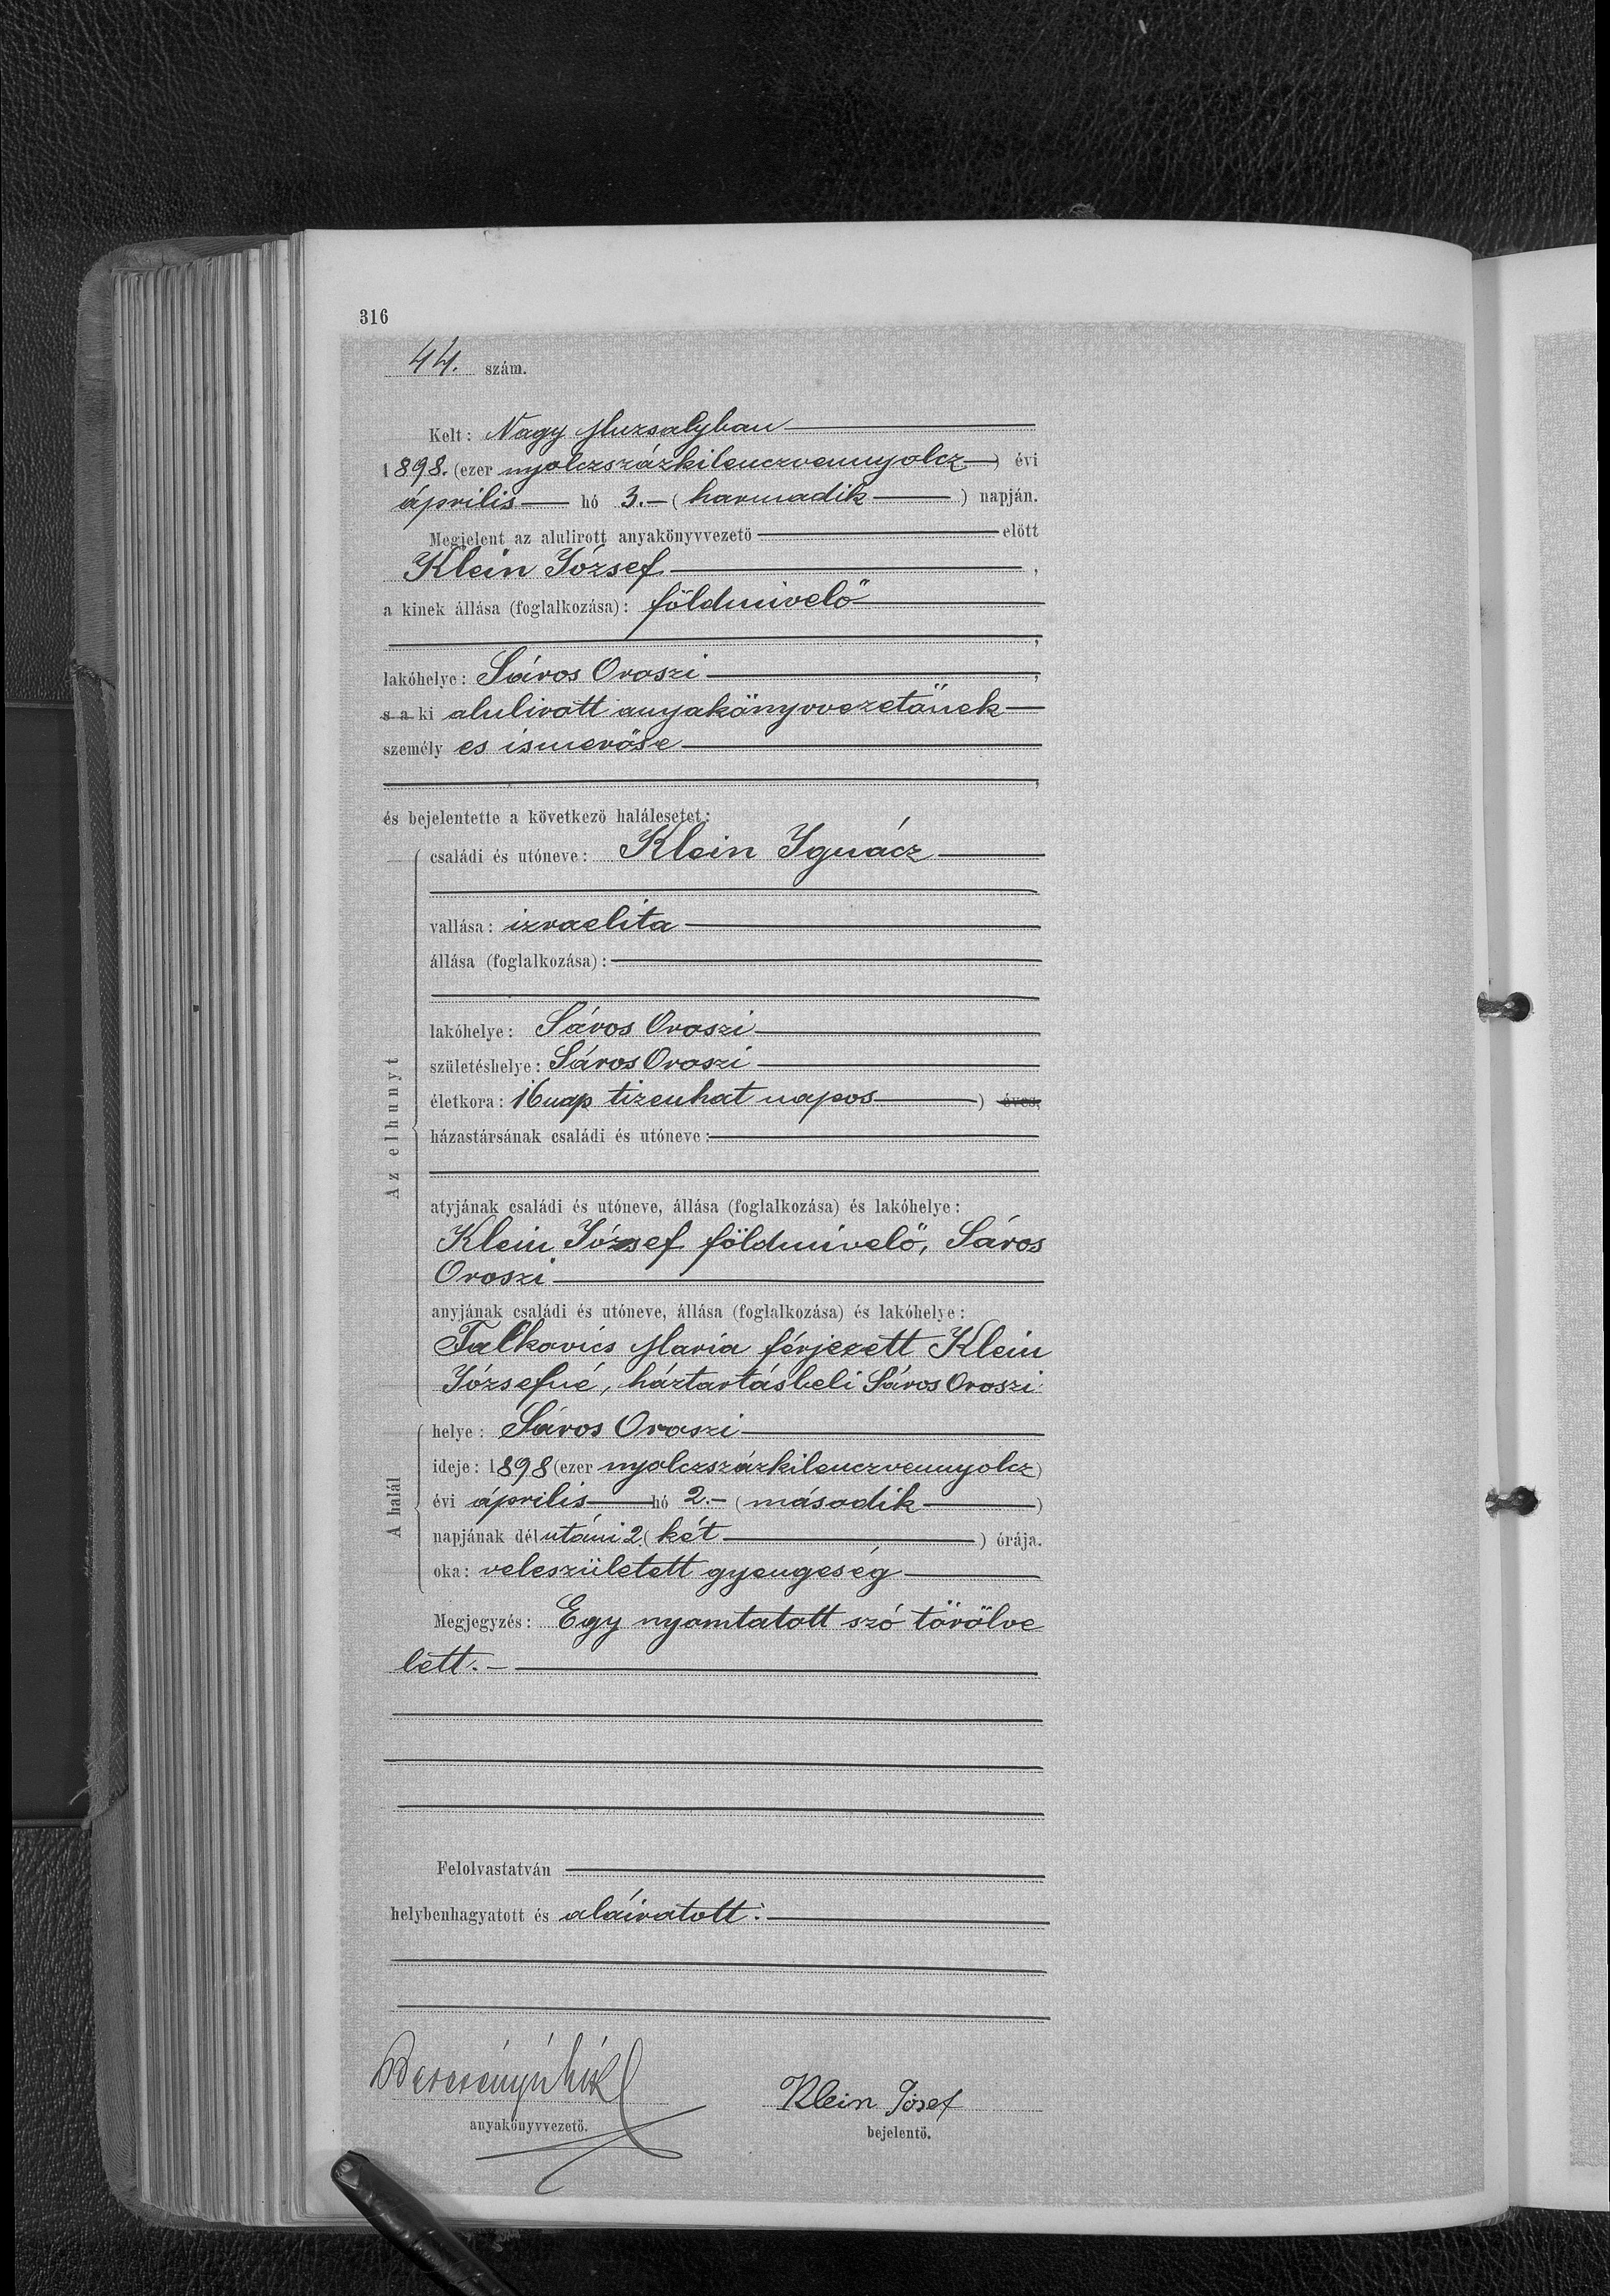 316
44. szám.
Kelt: Nagy Muzsalyban
1898. (ezer nyolczszázkilenczvennyolcz) évi
április hó 3. (harmadik) napján.
Megjelent az alulirott anyakönyvvezető előtt
Klein József,
a kinek állása (foglalkozása): földmivelő
,
lakóhelye: Sáros Oroszi,
s a ki alulirott anyakönyvvezetőnek
személyes ismerőse
,
és bejelentette a következő halálesetet:
Az elhunyt
családi és utóneve: Klein Ignácz
vallása: izraelita
állása (foglalkozása):
lakóhelye: Sáros Oroszi
születéshelye: Sáros Oroszi
életkora: 16 nap tizenhat napos) éves,
házastársának családi és utóneve:
atyjának családi és utóneve, állása (foglalkozása) és lakóhelye:
Klein József földmivelő, Sáros
Oroszi
anyjának családi és utóneve, állása (foglalkozása) és lakóhelye:
Falkovics Mária férjezett Klein
Józsefné, háztartásbeli Sáros Oroszi
A halál
helye: Sáros Oroszi
ideje: 1898 (ezer nyolczszázkilenczvennyolcz)
évi április hó 2. (második)
napjának délutáni 2 (két) órája.
oka: veleszületett gyengeség
Megjegyzés: Egy nyomtatott szó törölve
lett.
Felolvastatván
helybenhagyatott és aláiratott:
Klein Józef
anyakönyvvezető.
bejelentő.